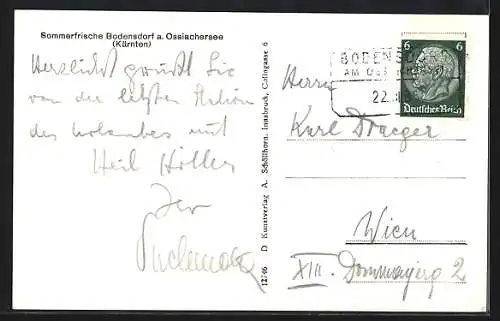 Sommerfrische Bodensdorf a. Ossiachersee
(Kärnten)
Herzlichst grüßt Sie
von der letzten Station
des Urlaubes mit
Heil Hitler
Ihr
12/46 D Kunstverlag A. Schöllhorn, Innsbruck, Colingasse 6
BODENSD
AM OSS
22.
6 6
Deutsches Reich
Herrn
Karl Draeger
Wien
XIII. Dommayerg 2